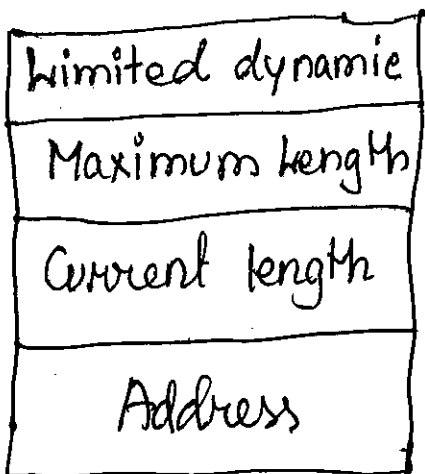 Limited dynamic
Maximum Length
Current length
Address